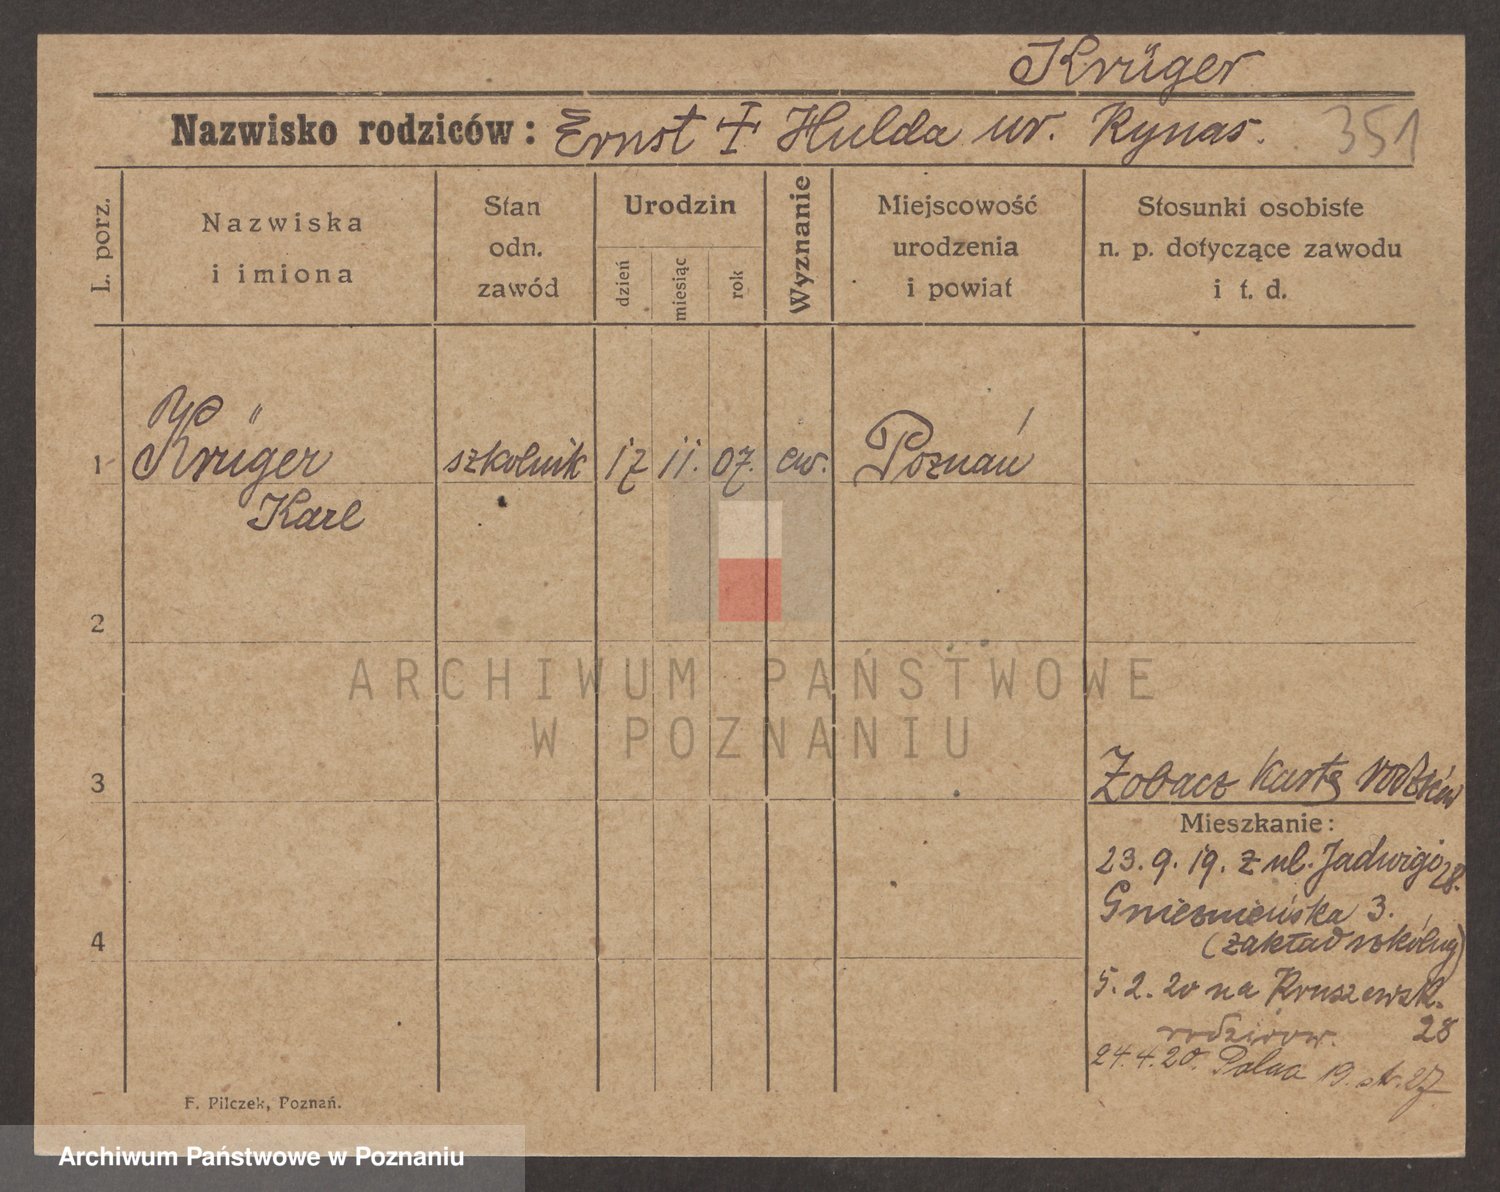 Krüger
Nazwisko rodziców: Ernst + Hulda ur. Rynas. 351
L. porz.
Nazwiska
i imiona
Stan
odn.
zawód
Urodzin
dzień
miesiąc
rok
Wyznanie
Miejscowość
urodzenia
i powiat
Stosunki osobiste
n. p. dotyczące zawodu
i t. d.
1 Krüger szkolnik 17 11. 07. ew. Poznań
Karl
2
ARCHIWUM PAŃSTWOWE
W POZNANIU
3
Zobacz kartę rodziców
Mieszkanie:
23. 9. 19. z ul. Jadwigi 28.
4
Gnieźnieńska 3.
(zakład szkólny)
5. 2. 20 na Kruszewsk.
28
24. 4. 20. Polna 19. str. 27
F. Pilczek, Poznań.
Archiwum Państwowe w Poznaniu